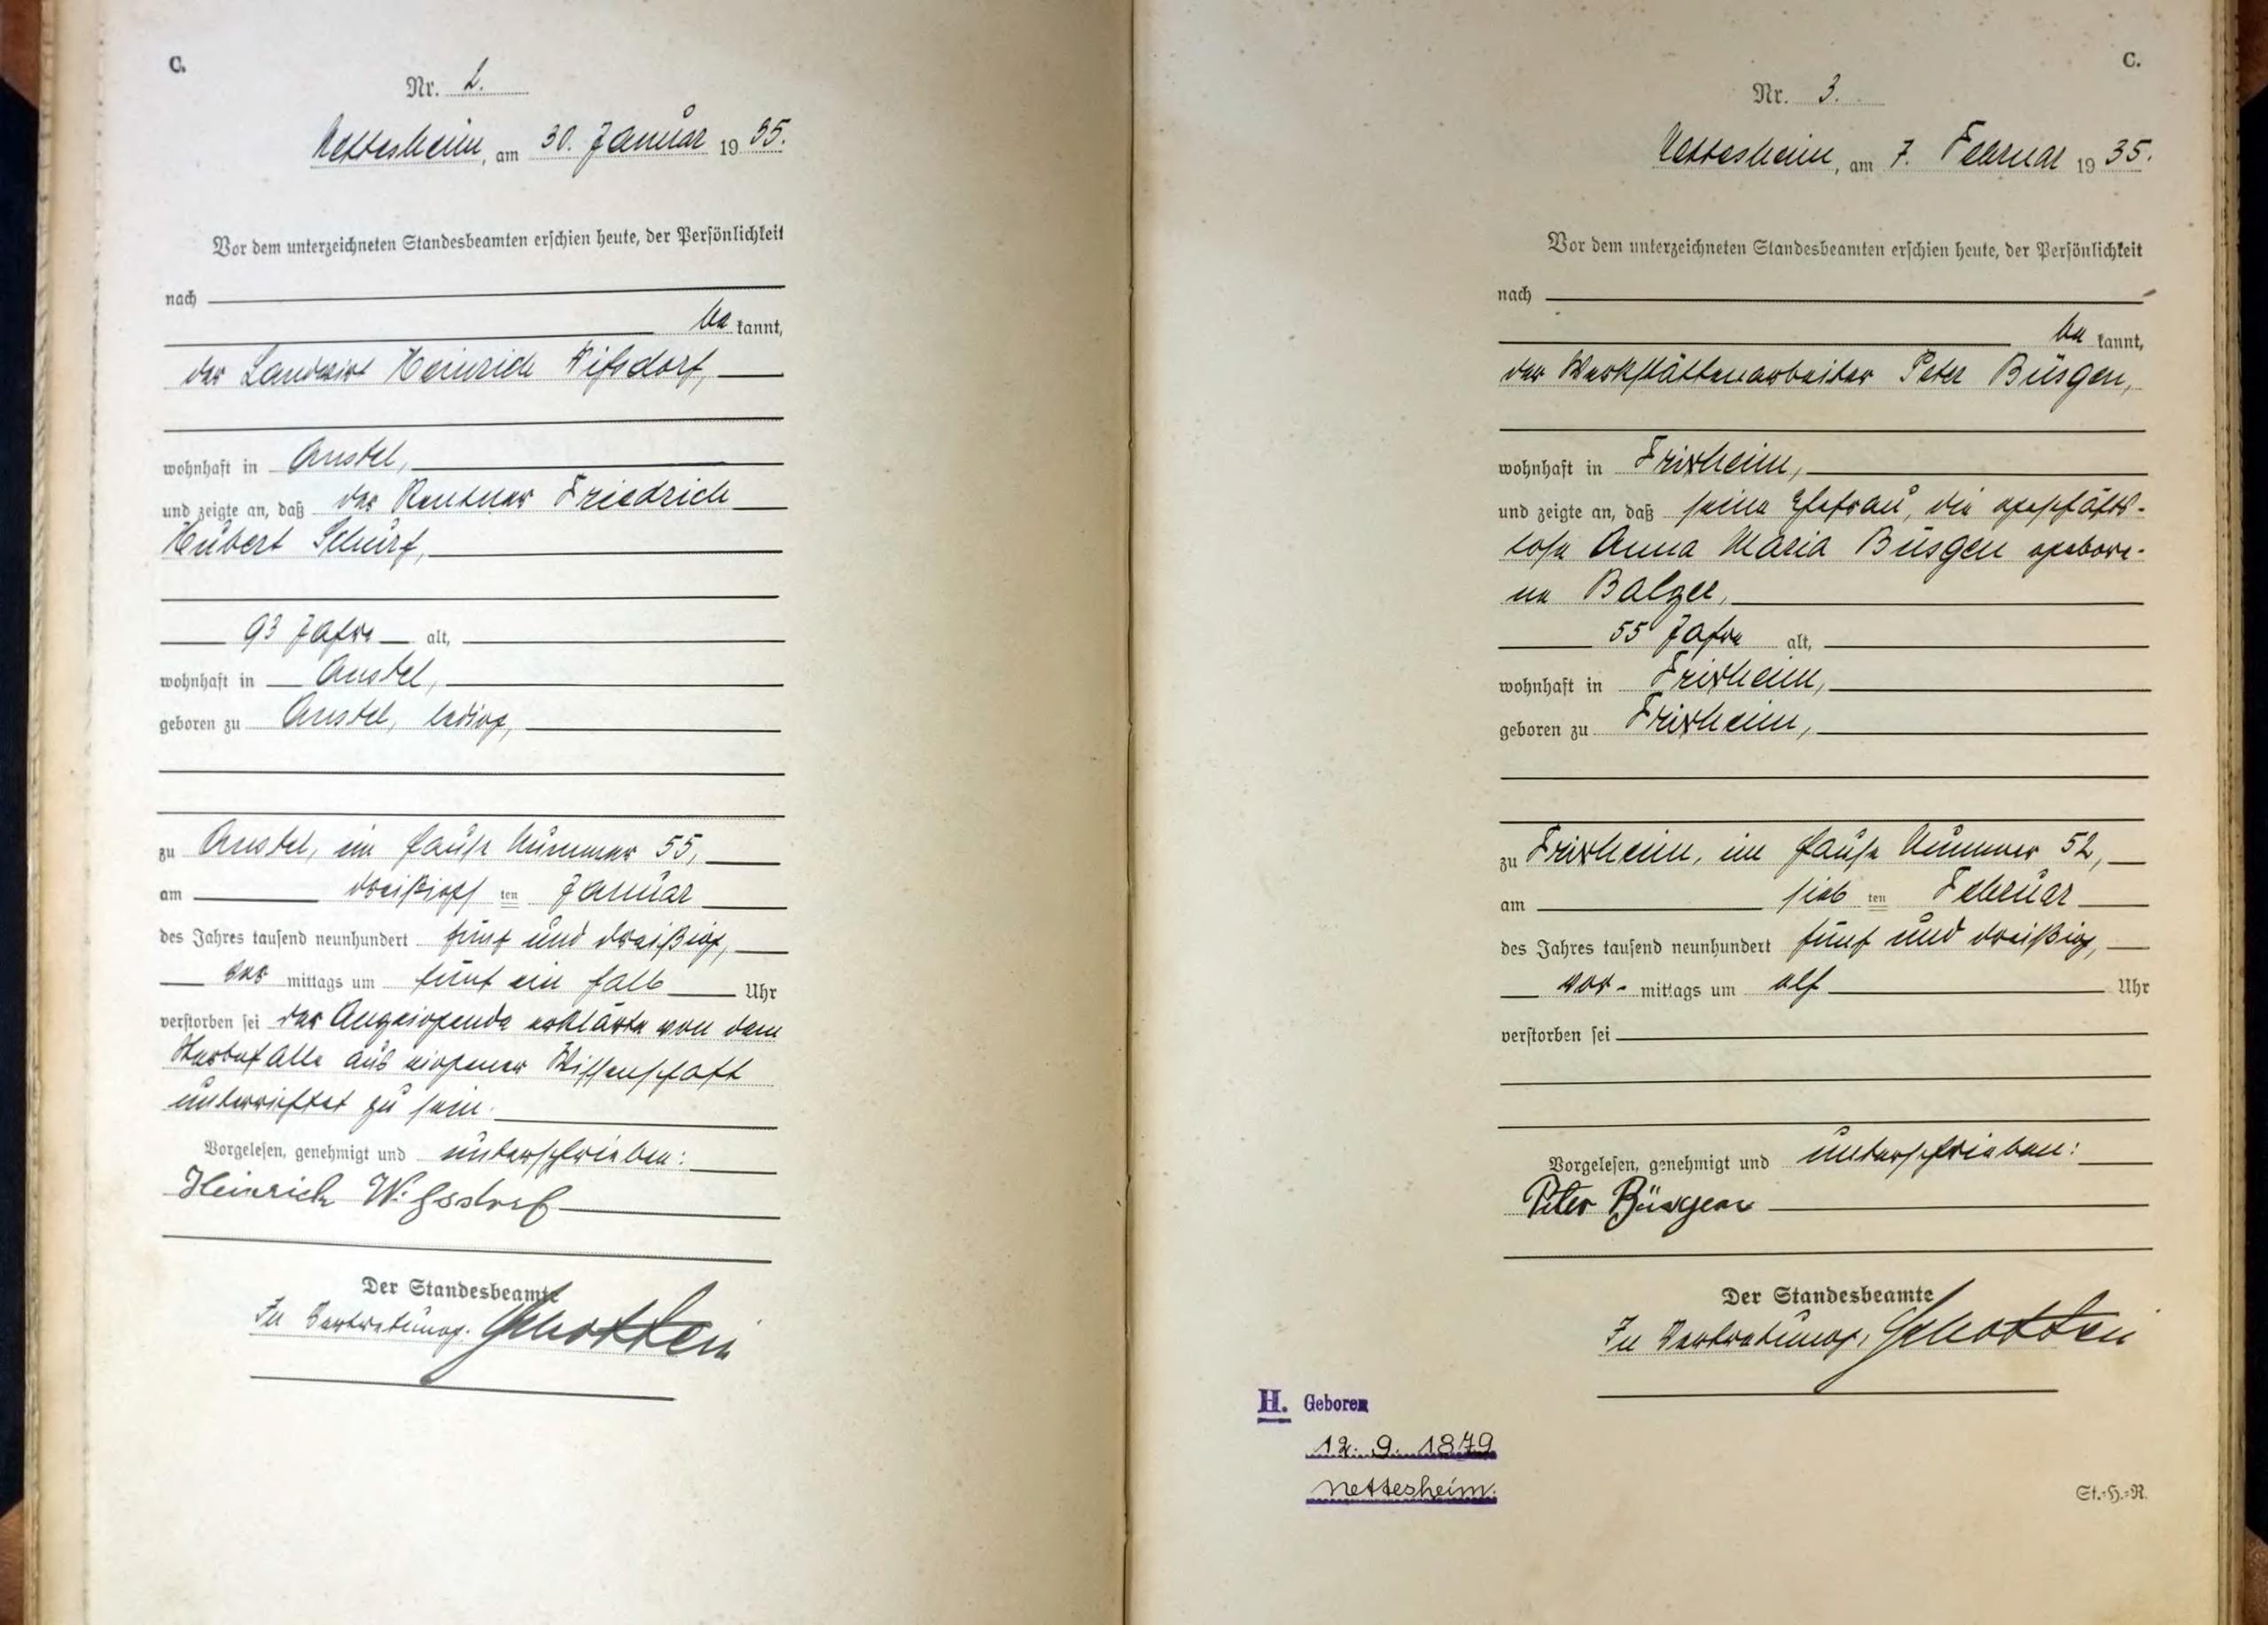 C.
Nr. 2.
Nettesheim, am 30. Januar 1935.
Vor dem unterzeichneten Standesbeamten erschien heute, der Persönlichkeit
nach
be kannt,
der Landwirt Heinrich Wißdorf,
wohnhaft in Anstel,
und zeigte an, daß der Rentner Friedrich
Hubert Schürf,
93 Jahre alt,
wohnhaft in Anstel,
geboren zu Anstel, ledig,
zu Anstel, im Hause Nummer 55,
am dreißigsten Januar
des Jahres tausend neunhundert fünf und dreißig,
vor mittags um fünf ein halb Uhr
verstorben sei der Anzeigende erklärte von dem
Sterbefalle aus eigener Wissenschaft
unterrichtet zu sein.
Vorgelesen, genehmigt und unterschrieben:
Heinrich Wißdorf
Der Standesbeamte
In Vertretung. Schotten
C.
Nr. 3.
Nettesheim, am 7. Februar 1935.
Vor dem unterzeichneten Standesbeamten erschien heute, der Persönlichkeit
nach
be kannt,
der Werkstättenarbeiter Peter Büsgen,
wohnhaft in Frixheim,
und zeigte an, daß seine Ehefrau, die geschäfts-
lose Anna Maria Büsgen gebore-
ne Balzer,
55 Jahre alt,
wohnhaft in Frixheim,
geboren zu Frixheim,
zu Frixheim, im Hause Nummer 52,
am siebten Februar
des Jahres tausend neunhundert fünf und dreißig,
vor- mittags um elf Uhr
verstorben sei
Vorgelesen, genehmigt und unterschrieben:
Peter Büsgen
Der Standesbeamte
In Vertretung, Schotten
H. Geboren
12. 9. 1879
Nettesheim.
St.-H.-R.